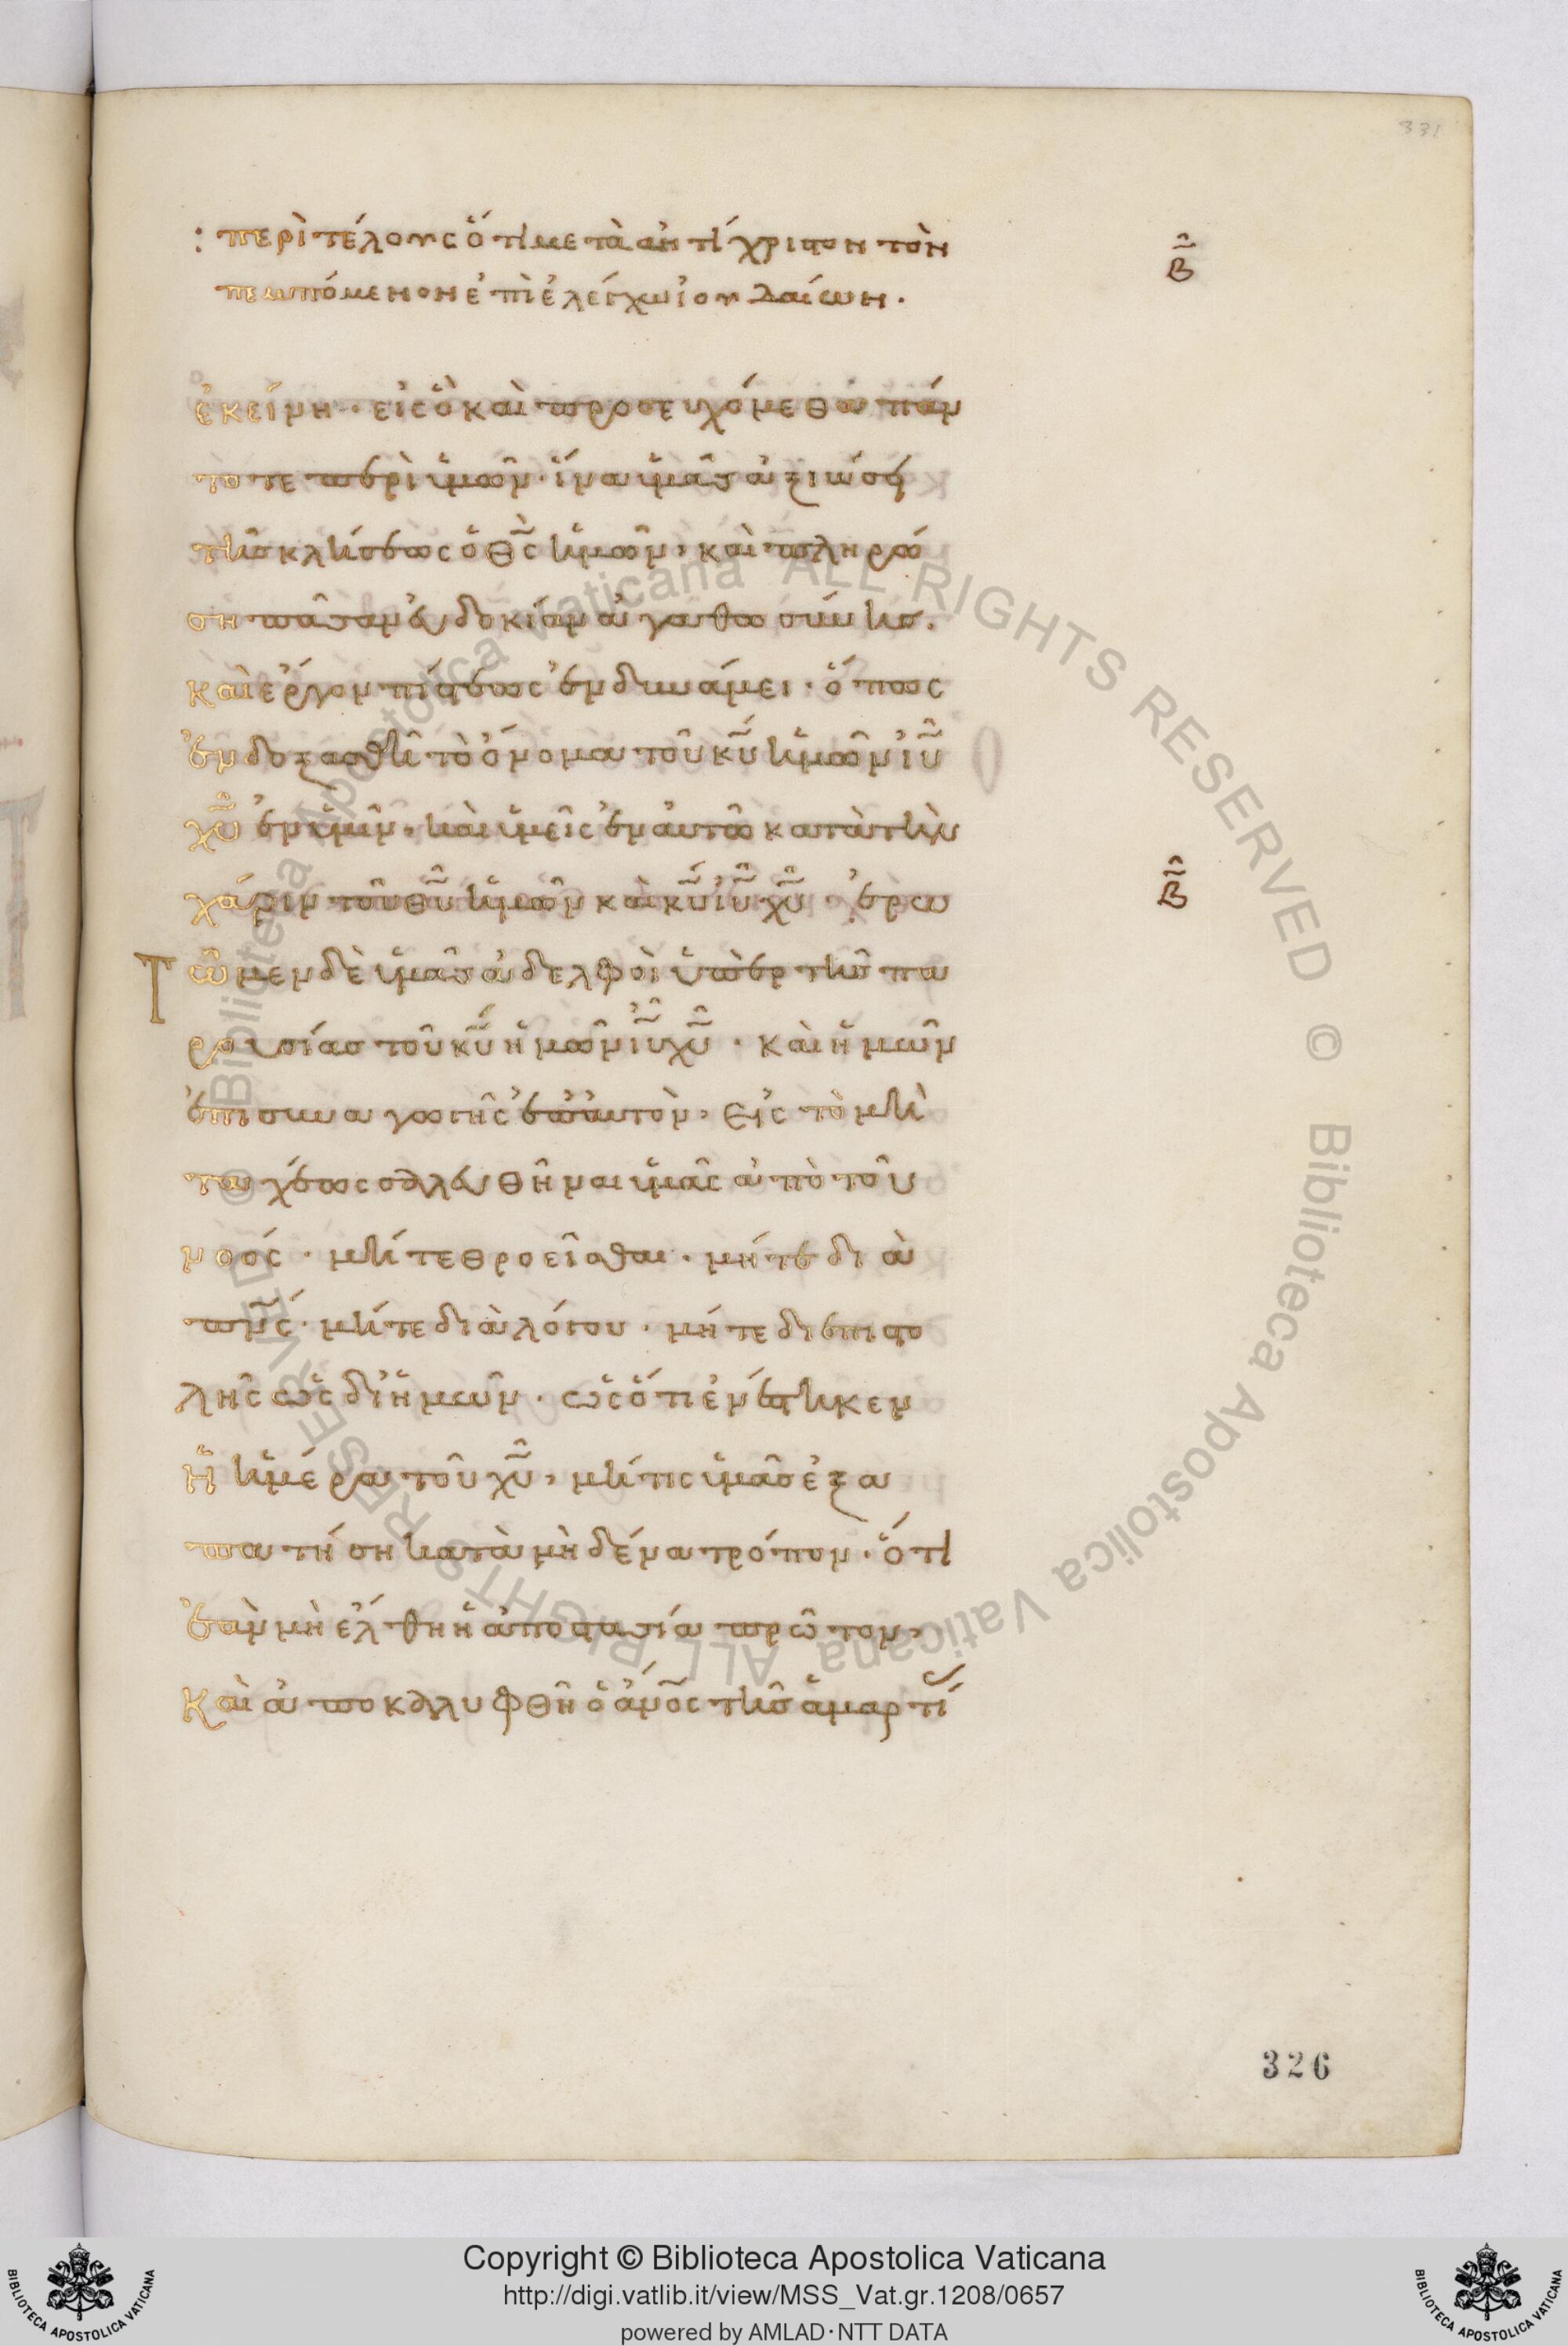 331
: περὶ τέλους ὅτι μετὰ ἀντίχριστον τὸν
πεμπόμενον ἐπὶ ἐλέγχω ἰουδαίων.
β
ἐκείνη· εἰς ὃ καὶ προσευχόμεθα πάν
τοτε περὶ ὑμῶν· ἵνα ὑμᾶς ἀξιώση
τῆς κλήσεως ὁ θς ἡμῶν, καὶ πληρώ
ση πᾶσαν εὐδοκίαν ἀγαθωσύνης.
καὶ ἔργον πίστεως ἐν δυνάμει· ὅπως
ἐνδοξασθῆ τὸ ὄνομα τοῦ κυ ἡμῶν ιυ
χυ ἐν ὑμῖν, καὶ ὑμεῖς ἐν αὐτῶ κατὰ τὴν
χάριν τοῦ θυ ἡμῶν καὶ κυ ιυ χυ· ἐρω
β
Τῶμεν δὲ ὑμᾶς ἀδελφοὶ ὑπὲρ τῆς πα
ρουσίας τοῦ κυ ἡμῶν ιυ χυ· καὶ ἡμῶν
ἐπισυναγωγῆς ἐπ αὐτὸν, εἰς τὸ μὴ
ταχέως σαλευθῆναι ὑμᾶς ἀπὸ τοῦ
νοός· μήτε θροεῖσθαι· μήτε διὰ
πνς· μήτε διὰ λόγου· μήτε δι ἐπιστο
λῆς ὡς δι ἡμῶν· ὡς ὅτι ἐνέστηκεν
ἡ ἡμέρα τοῦ χυ, μήτις ὑμᾶς ἐξα
πατήση κατὰ μηδένα τρόπον· ὅτι
ἐὰν μὴ ἔλθη ἡ ἀποστασία πρῶτον,
καὶ ἀποκαλυφθῆ ὁ ἄνος τῆς ἁμαρτί
326
© Biblioteca Apostolica Vaticana ALL RIGHTS RESERVED © Biblioteca Apostolica Vaticana ALL RIGHTS RESERVED
Copyright © Biblioteca Apostolica Vaticana
http://digi.vatlib.it/view/MSS_Vat.gr.1208/0657
powered by AMLAD·NTT DATA
BIBLIOTECA APOSTOLICA VATICANA
BIBLIOTECA APOSTOLICA VATICANA